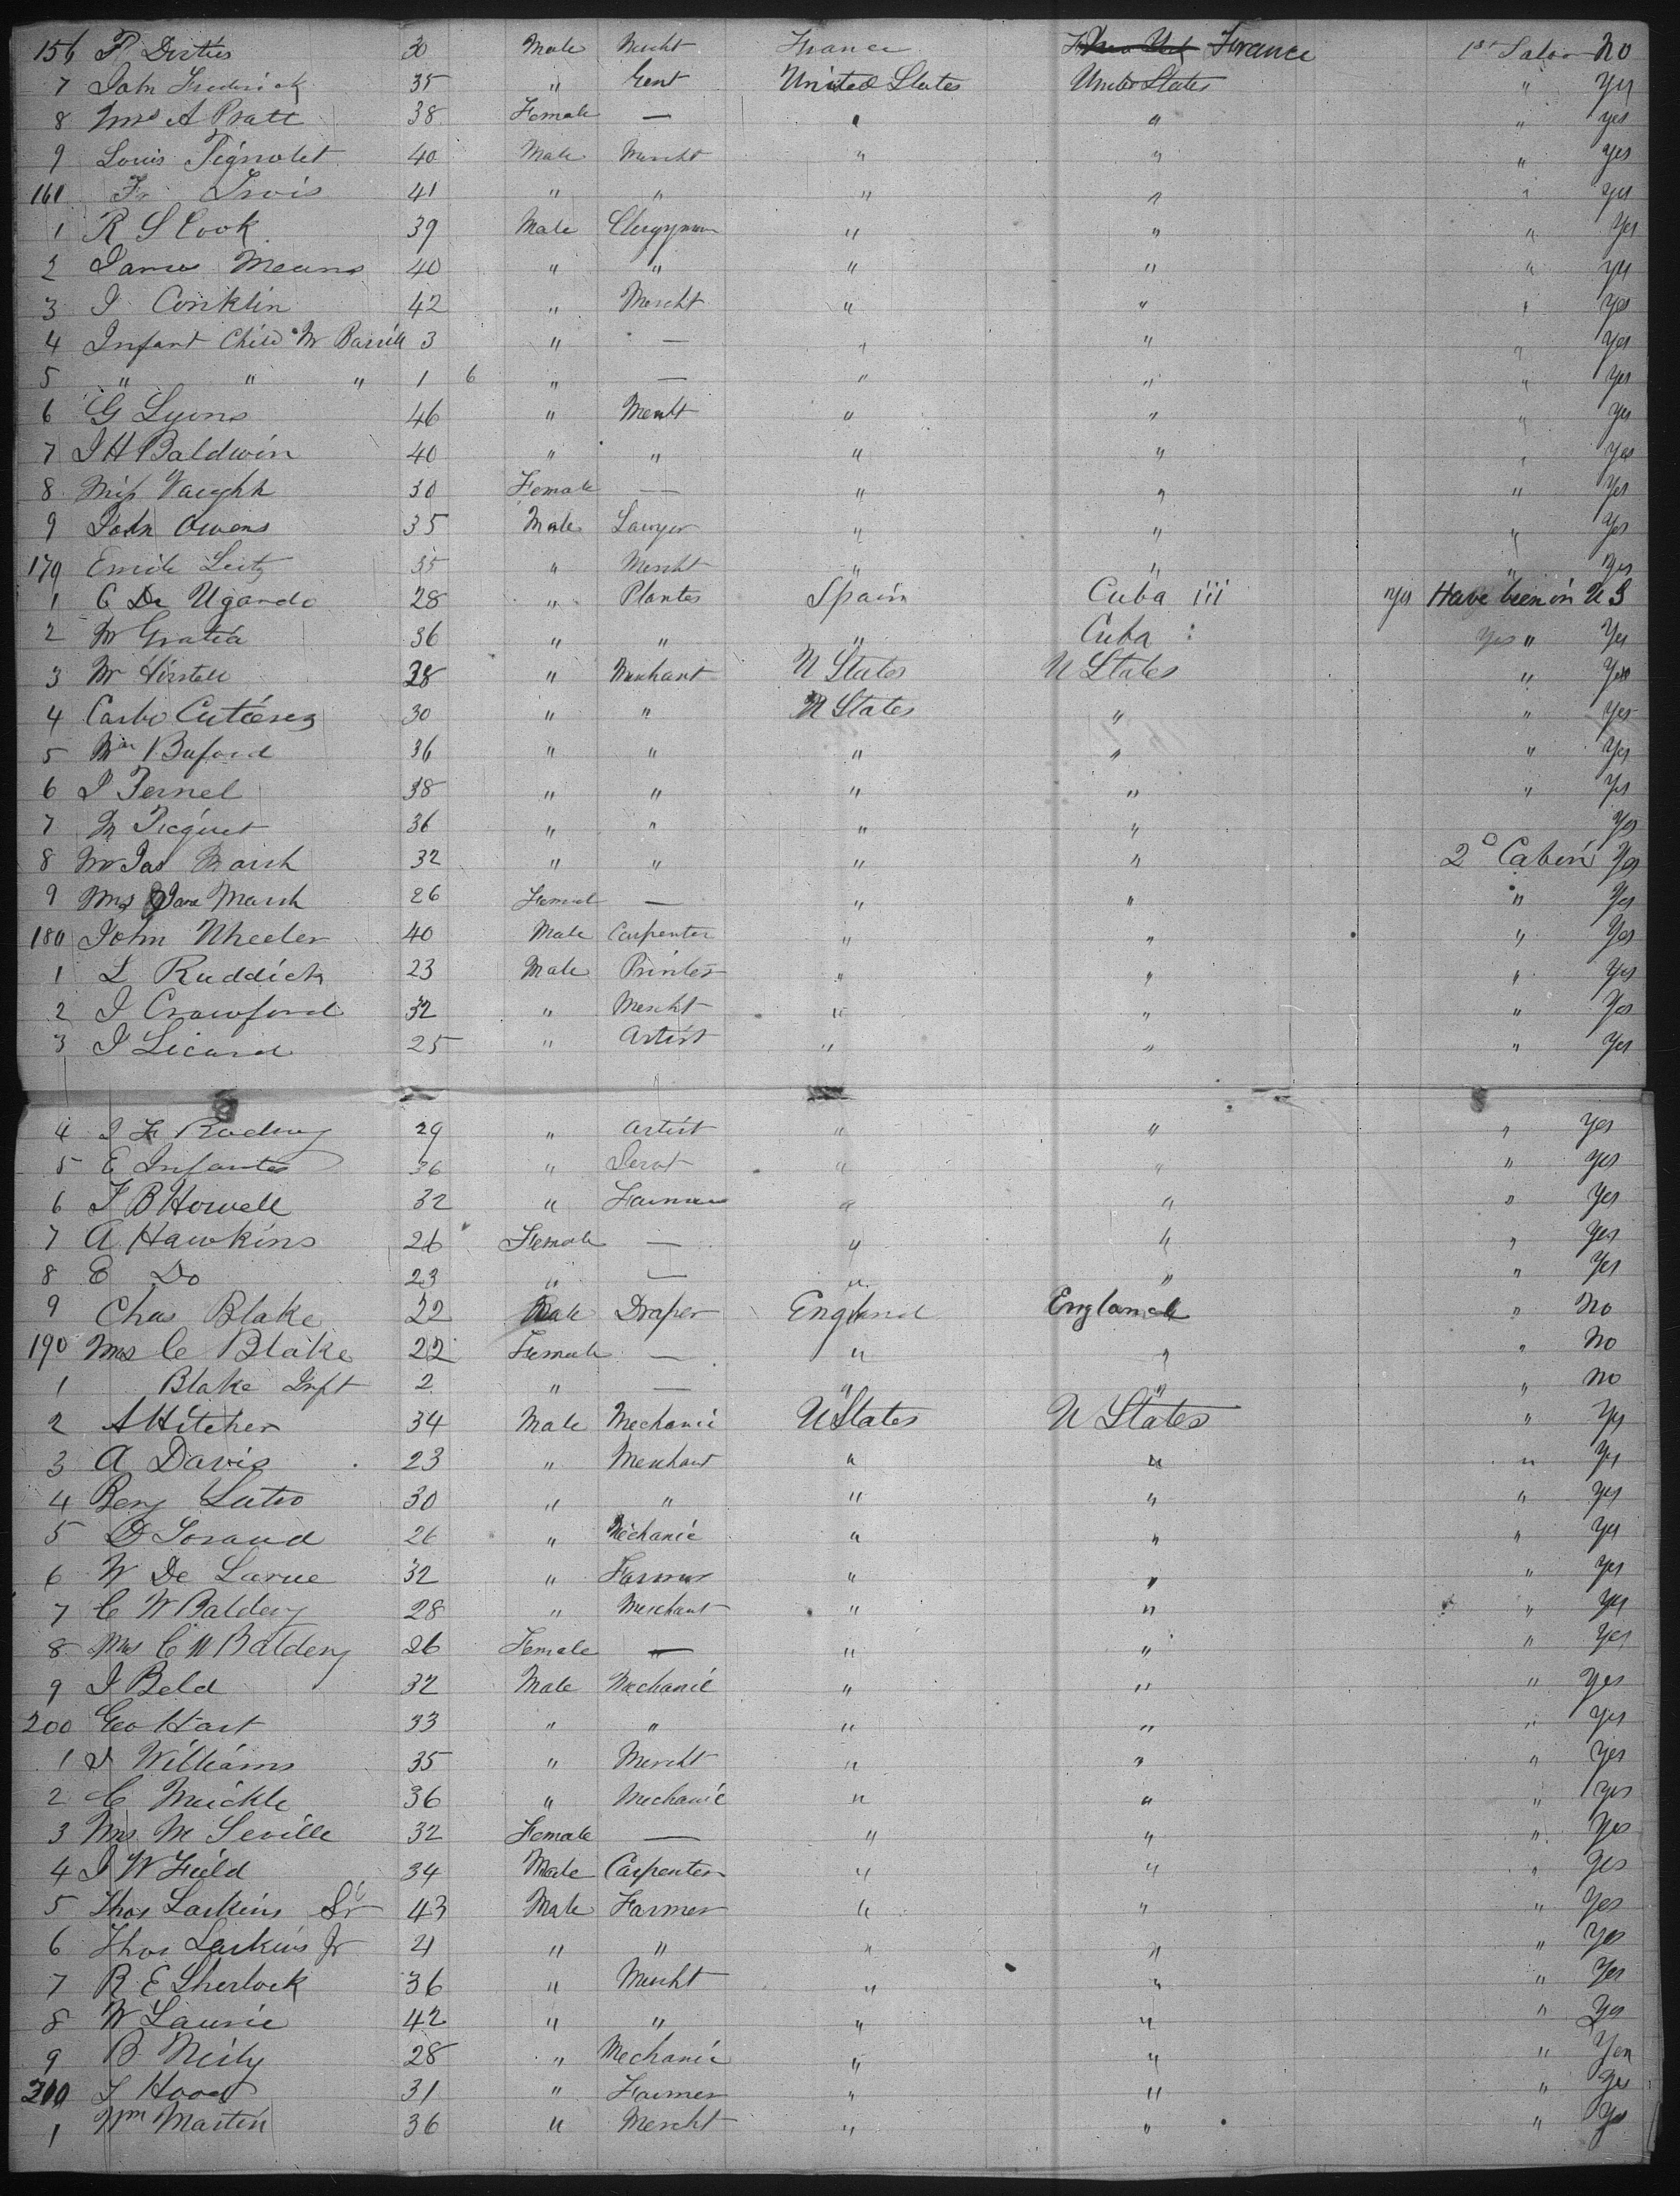 156 P 30 Male Mercht France France 1st Saloon No
7 John Frederick 35 " Gent United States United States " Yes
8 Mrs A Pratt 38 Female — " " " Yes
9 Louis Pignolet 40 Male Mercht " " " Yes
161 41 " " " " " Yes
1 R S Cook 39 Male Clergyman " " " Yes
2 James Means 40 " " " " " Yes
3 J Conklin 42 " Mercht " " " Yes
4 Infant Child Mr 3 " — " " " Yes
5 " " " 1 6 " — " " " Yes
6 G Lyons 46 " Mercht " " " Yes
7 J H Baldwin 40 " " " " " Yes
8 Miss Vaughh 30 Female — " " " Yes
9 John Owens 35 Male Lawyer " " " Yes
179 Emile 35 " Mercht " " " Yes
1 C De Ugando 28 " Planter Spain Cuba iii yes Have been in U S
2 M Gratia 36 " " " Cuba : yes " Yes
3 Mr 28 " Merchant U States U States " Yes
4 Carlos Cutierez 30 " " U States " " Yes
5 Wm Buford 36 " " " " " Yes
6 J Fernel 38 " " " " " Yes
7 M Picquet 36 " " " " Yes
8 Mr Jas Marsh 32 " " " " 2d Cabin Yes
9 Mrs Jane Marsh 26 Female — " " " Yes
180 John Wheeler 40 Male Carpenter " " " Yes
1 L Ruddick 23 Male Printer " " " Yes
2 J Crawford 32 " Mercht " " " Yes
3 J Licard 25 " Artist " " " Yes
4 J F Rodney 29 " Artist " " " Yes
5 E Infantes 36 " " " " Yes
6 J B Howell 32 " Farmer " " " Yes
7 A Hawkins 26 Female — " " " Yes
8 E Do 23 " — " " " Yes
9 Chas Blake 22 Male Draper England England " No
190 Mrs C Blake 22 Female — " " " No
1 Blake Inft 2 " — " " " No
2 A Hitcher 34 Male Mechanic U States U States " Yes
3 A Davis 23 " Merchant " " " Yes
4 Benj 30 " " " " " Yes
5 D Soraud 26 " Mechanic " " " Yes
6 W De Larue 32 " Farmer " " " Yes
7 C W Baldery 28 " Merchant " " " Yes
8 Mrs C W Baldery 26 Female — " " " Yes
9 J Beld 32 Male Mechanic " " " Yes
200 Geo Hart 33 " " " " " Yes
1 D Williams 35 " Mercht " " " Yes
2 C Meickle 36 " Mechanic " " " Yes
3 Mrs M Seville 32 Female — " " " Yes
4 J W Field 34 Male Carpenter " " " Yes
5 Thos Larkins Sr 43 Male Farmer " " " Yes
6 Thos Larkins Jr 21 " " " " " Yes
7 R E Sherlock 36 " Mercht " " " Yes
8 W Laurie 42 " " " " " Yes
9 B Neily 28 " Mechanic " " " Yes
210 J Hood 31 " Farmer " " " Yes
1 Wm Martin 36 " Mercht " " " Yes